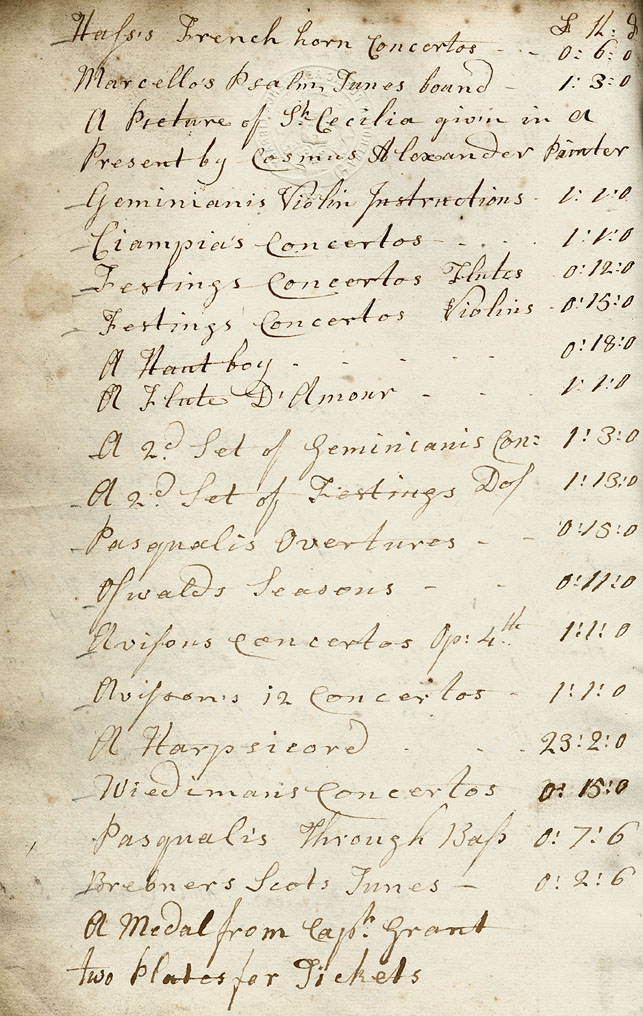 £ S: D
Hasse's French horn Concertos - - 0: 6: 0
Marcello's Psalm Tunes bound - 1: 3: 0
A Picture of St. Cecilia givin in a
Present by Cosmus Alexander Painter
Geminianis Violin Instructions - 1: 1: 0
Ciampia's Concertos - - . . 1: 1: 0
Festings Concertos Flutes 0: 12: 0
Festings Concertos Violins - 0: 15: 0
A Hautboy - . . . . 0: 18: 0
A Flute D'Amour - - . 1: 1: 0
A 2d. Set of Geminianis Con: 1: 3: 0
A 2d. Set of Festings Do 1: 13: 0
Pasqualis Overtures - - 0: 15: 0
Oswalds Seasons - - 0: 11: 0
Avisons Concertos Op: 4th. 1: 1: 0
Avisson's 12 Concertos - 1: 1: 0
A Harpsicord . . . 23: 2: 0
Wiedimans Concertos 0: 15: 0
Pasqualis Through Bass 0: 7: 6
Bremners Scots Tunes - 0: 2: 6
A Medal from Capt. Grant
two Plates for Tickets